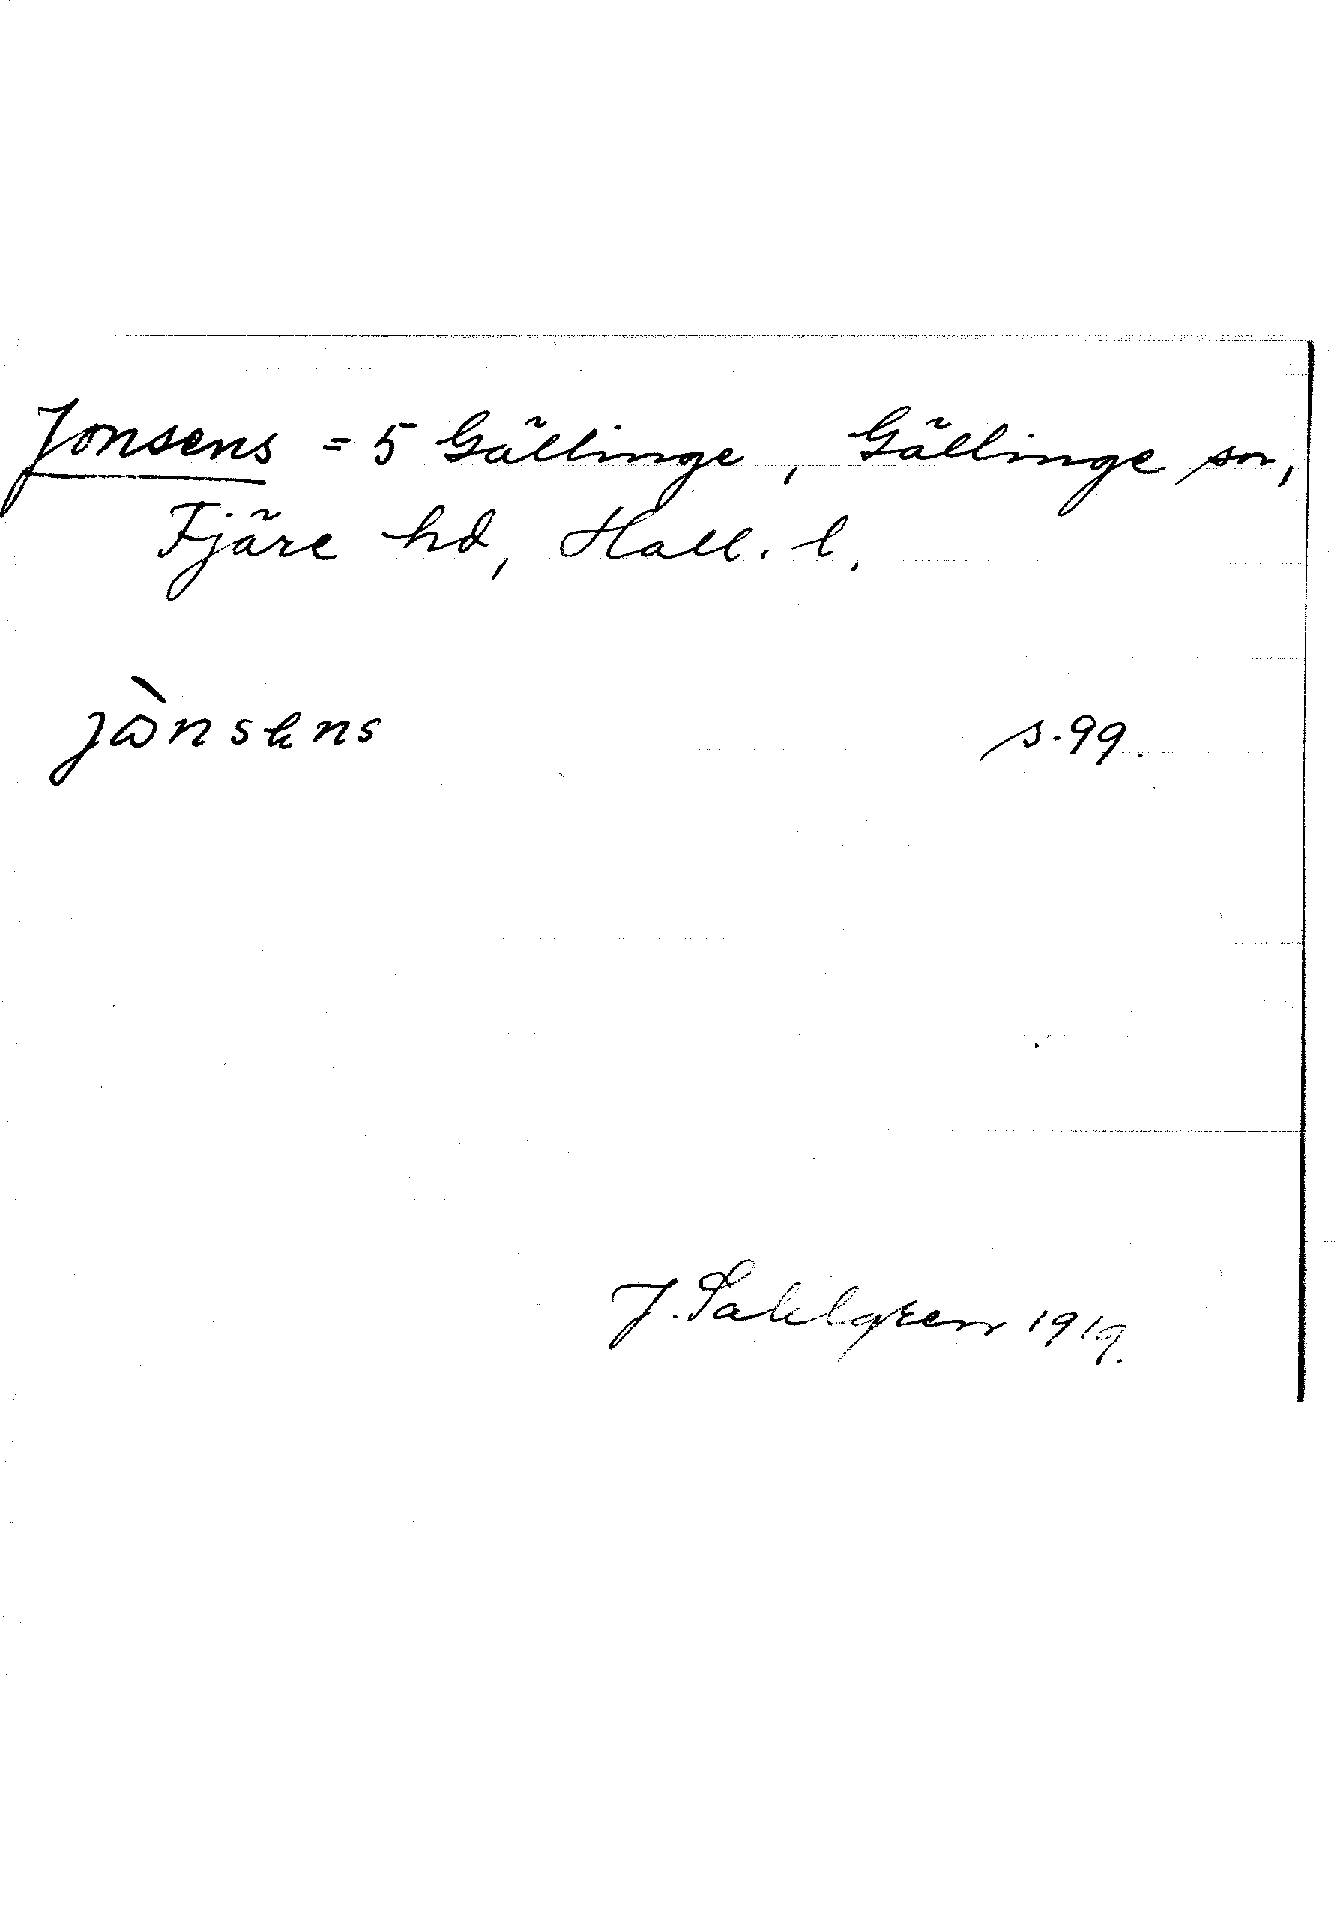 Jonsens = 5 Gällinge, Gällinge sn,
Fjäre hd, Hall. l.
s. 99.
J. Sahlgren 1919.